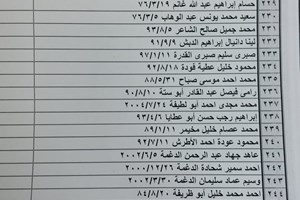 ٢٢٩ حسام إبراهيم عبد الله غانم ٧٦/٣/١٩
٢٣٠ سعيد محمد يونس عبد الوهاب ٧٦/٣/٥
٢٣١ محمد جميل صالح الشاعر ٩٣/٨/٥
٢٣٢ لينا دانيال إبراهيم الدبش ٩١/٩/٩
٢٣٣ صبري سليم صبري القدرة ٩٧/١
٢٣٤ محمود خليل عطية فودة ٩٢/٨/١٨
٢٣٥ محمد احمد موسى صباح ٨٨/٥/٣١
٢٣٦ رامي فيصل عبد القادر أبو ستة ٩٠/٨/١٠
٢٣٧ محمد مجدى احمد أبو لطيفة ٢٠٠٤/٧/٢٤
٢٣٨ إبراهيم رجب حسن أبو عطايا ٩٣/٤/٦
٢٣٩ محمد عصام خليل مخيمر ٨٩/١/١١
٢٤٠ محمود عودة احمد الأطرش ٩٢/٧/١١
٢٤١ عاهد جهاد عبد الرحمن الدغمة ٢٠٠٢/٦/٥
٢٤٢ احمد سمير شحادة الدغمة ٢٠٠٠/١٢/٢٦
٢٤٣ وسيم عماد سليمان الدغمة ٢٠٠٢/٣/٣٠
٢٤٤ احمد محمد خليل أبو طريفة ٨٤/٨/٢٠